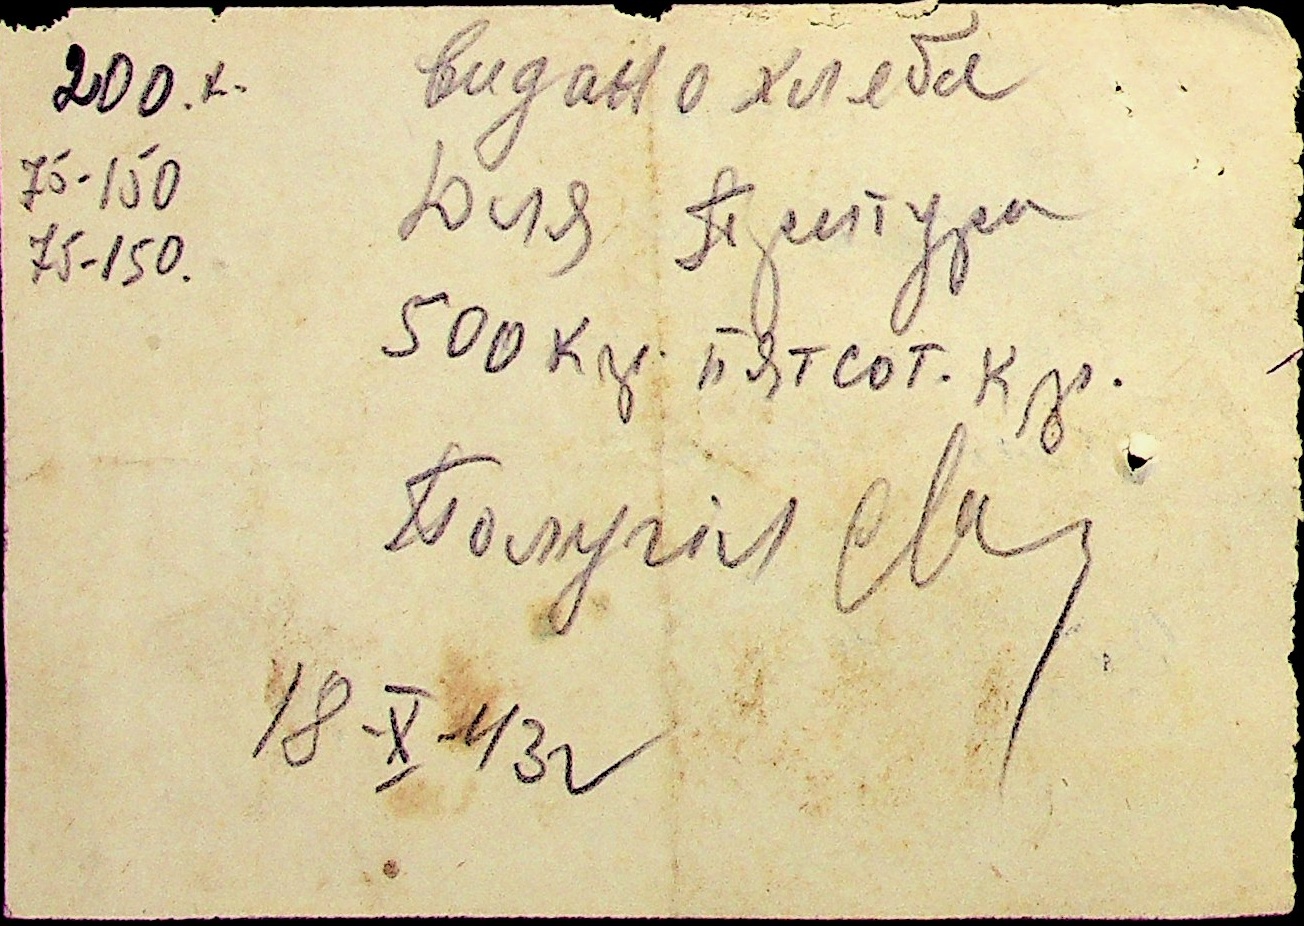 200.к.
75-150
75-150.
Видано хлеба
Для
500 кг. пятсот. кгр.
Получил
18-X-43г